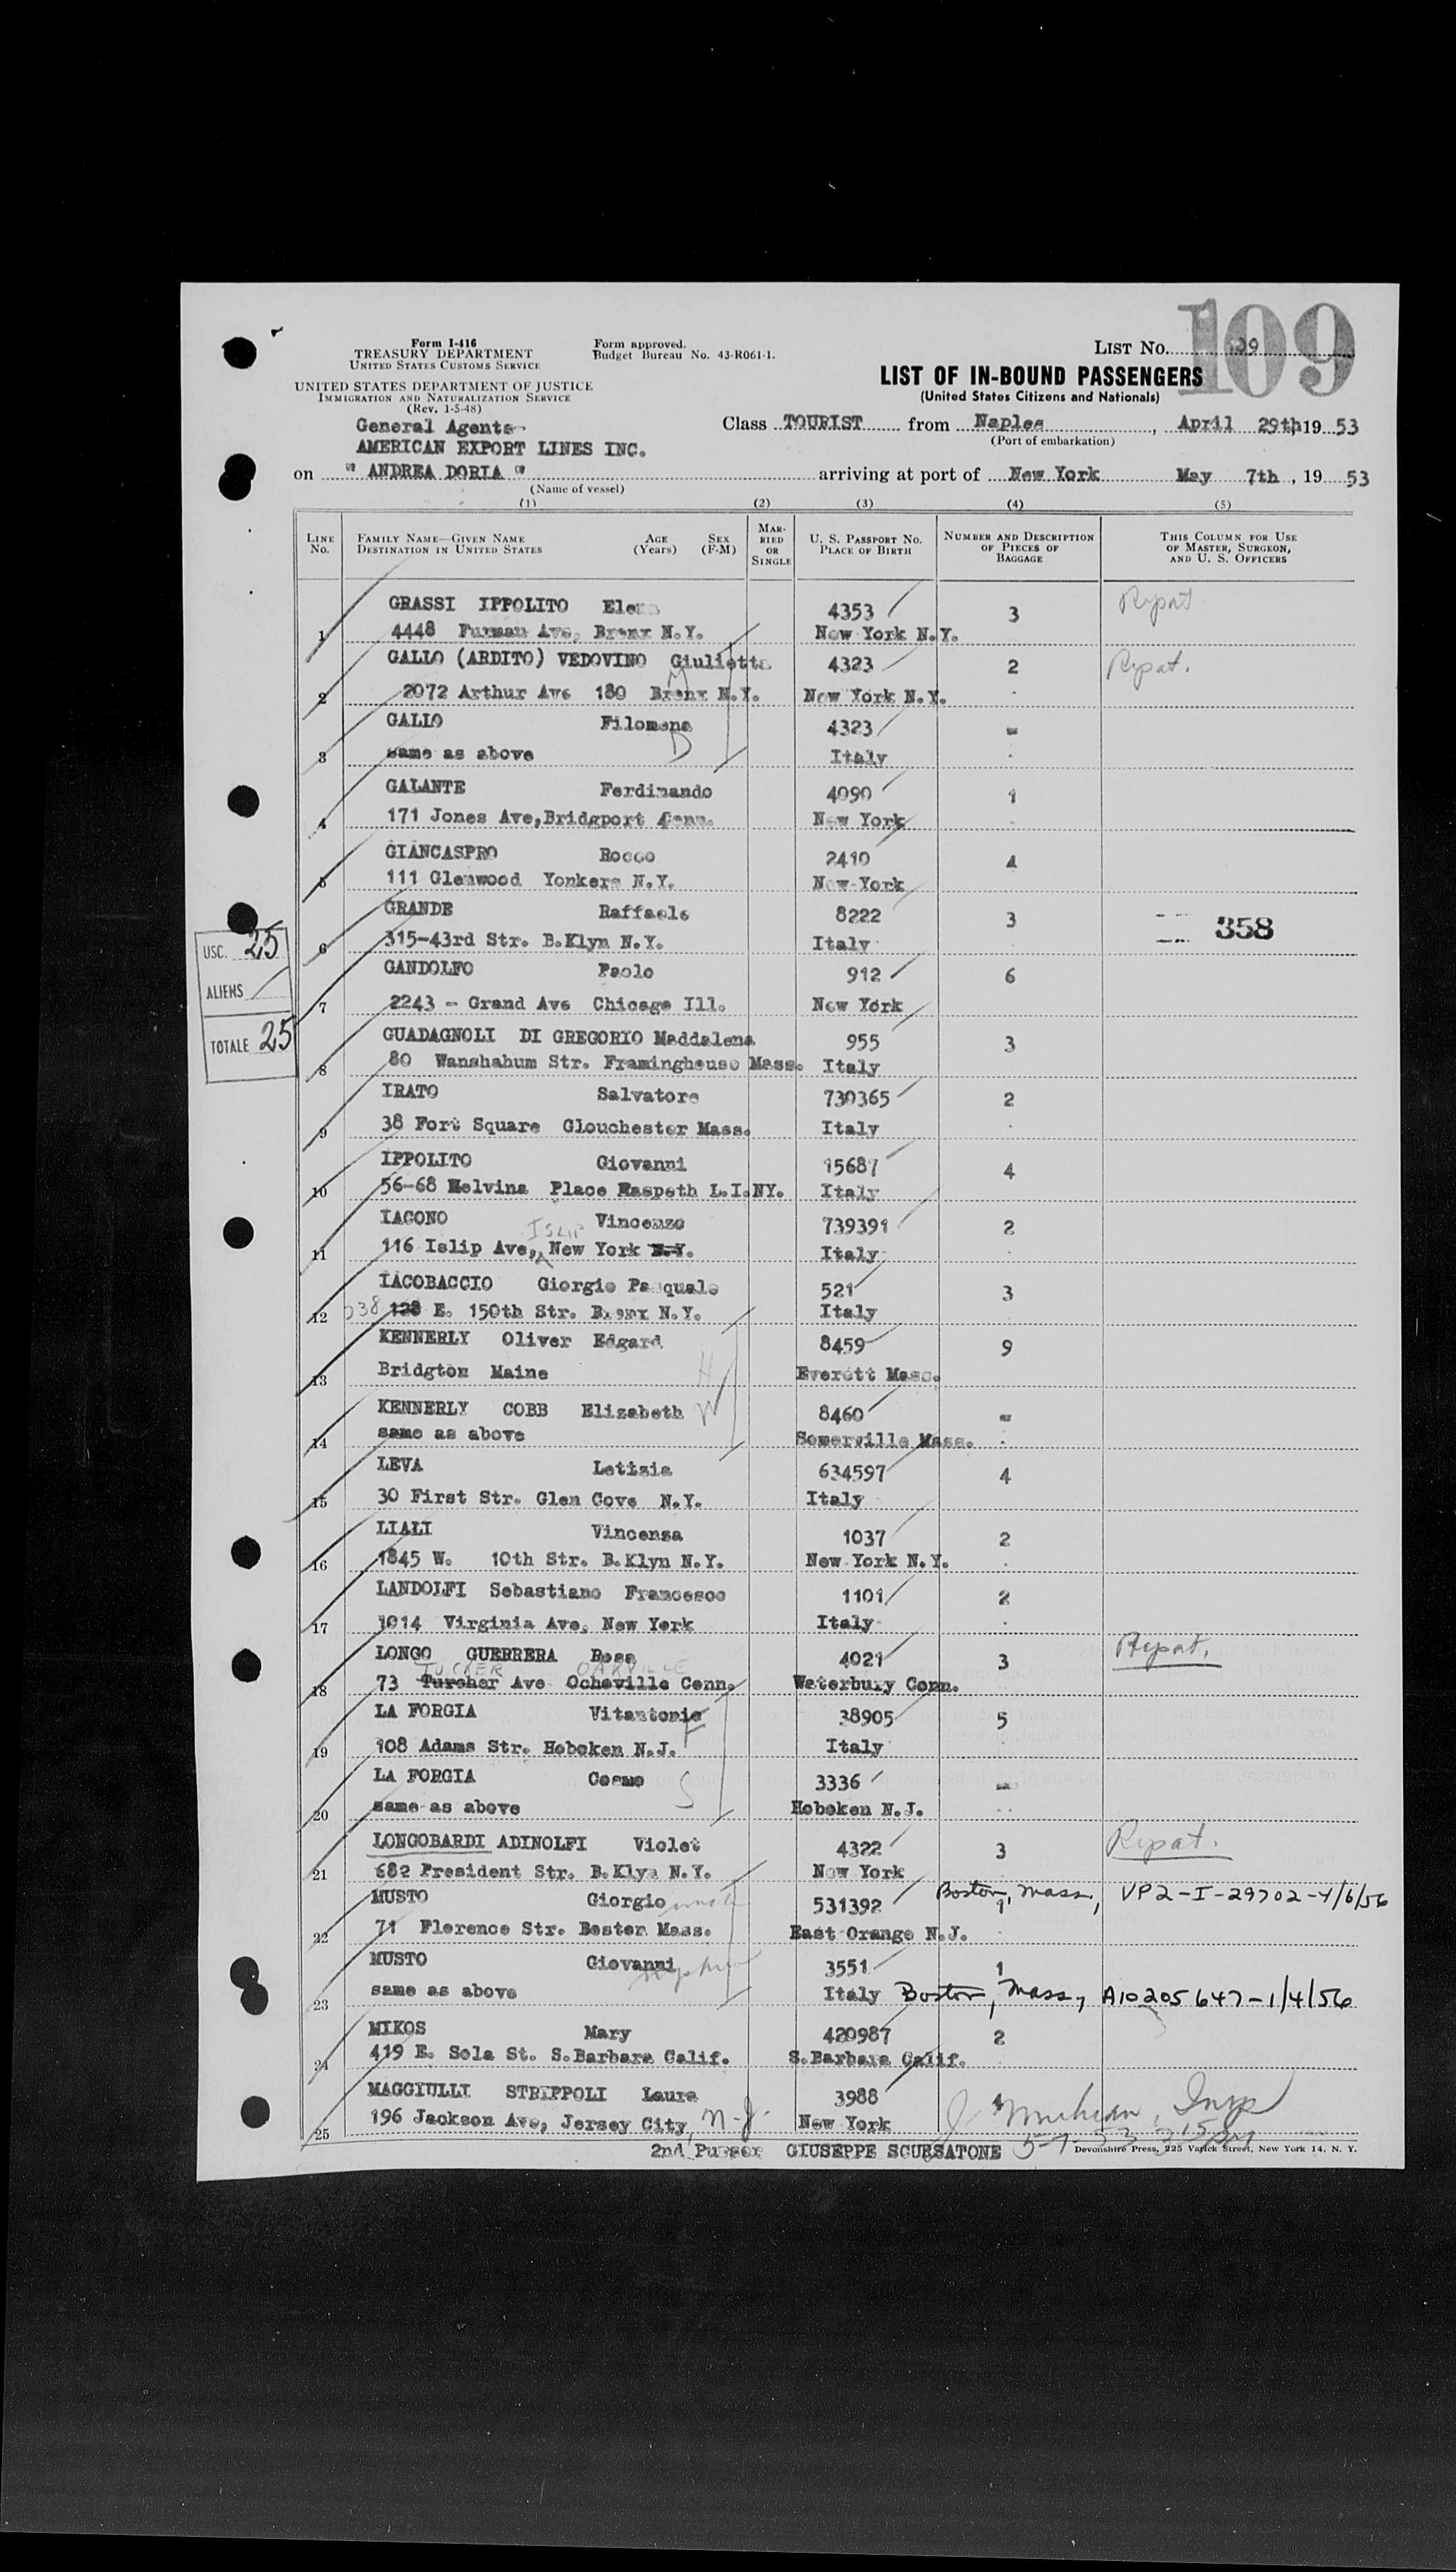 109
Form I-416
TREASURY DEPARTMENT
UNITED STATES CUSTOMS SERVICE
Form approved.
Budget Bureau No. 43-R061-1.
LIST No. 109
UNITED STATES DEPARTMENT OF JUSTICE
IMMIGRATION AND NATURALIZATION SERVICE
(Rev. 1-5-48)
LIST OF IN-BOUND PASSENGERS
(United States Citizens and Nationals)
General Agents-
AMERICAN EXPORT LINES INC.
Class TOURIST from Naples, April 29th 19 53
(Port of embarkation)
on " ANDREA DORIA " arriving at port of New York May 7th, 19 53
(Name of vessel)
(1) (2) (3) (4) (5)
LINE No. FAMILY NAME—GIVEN NAME DESTINATION IN UNITED STATES AGE (Years) SEX (F-M) MARRIED OR SINGLE U. S. PASSPORT NO. PLACE OF BIRTH NUMBER AND DESCRIPTION OF PIECES OF BAGGAGE THIS COLUMN FOR USE OF MASTER, SURGEON, AND U. S. OFFICERS
GRASSI IPPOLITO Elena 4353 3 Repat
1 4448 Furman Ave, Bronx N.Y. New York N.Y.
GALLO (ARDITO) VEDOVINO Giulietta 4323 2 Repat.
2 2072 Arthur Ave 180 Bronx N.Y. New York N.Y.
M
GALLO Filomena 4323 -
3 same as above D Italy
GALANTE Ferdinando 4090 1
4 171 Jones Ave, Bridgport Conn. New York
GIANCASPRO Rocco 2410 4
5 111 Glenwood Yonkers N.Y. New York
GRANDE Raffaele 8222 3 358
6 315-43rd Str. B.Klyn N.Y. Italy
USC. 25
ALIENS /
TOTALE 25
GANDOLFO Paolo 912 6
7 2243 - Grand Ave Chicago Ill. New York
GUADAGNOLI DI GREGORIO Maddalena 955 3
8 80 Wanshahum Str. Framinghouse Mass. Italy
IRATO Salvatore 730365 2
9 38 Fort Square Glouchester Mass. Italy
IPPOLITO Giovanni 15687 4
10 56-68 Melvina Place Maspeth L.I.NY. Italy
IACONO Vincenzo 739391 2
ISLIP
11 116 Islip Ave, New York N.Y. Italy
IACOBACCIO Giorgio Pasquale 521 3
12 238 128 E. 150th Str. Bronx N.Y. Italy
KENNERLY Oliver Edgard 8459 9
13 Bridgton Maine H Everett Mass.
KENNERLY COBB Elizabeth W 8460 -
14 same as above Somerville Mass.
LEVA Letizia 634597 4
15 30 First Str. Glen Cove N.Y. Italy
LIALI Vincenza 1037 2
16 1845 W. 10th Str. B.Klyn N.Y. New York N.Y.
LANDOLFI Sebastiano Francesco 1101 2
17 1014 Virginia Ave, New York Italy
LONGO GUERRERA Rosa 4021 3 Repat.
TUCKER OAKVILLE
18 73 Turcher Ave Ocheville Conn. Waterbury Conn.
LA FORGIA Vitantonio 38905 5
19 108 Adams Str. Hoboken N.J. F Italy
LA FORGIA Cosmo 3336 -
20 same as above S Hoboken N.J.
LONGOBARDI ADINOLFI Violet 4322 3 Repat.
21 682 President Str. B.Klyn N.Y. New York
MUSTO Giorgio uncle 531392 1 Boston, Mass, VP2-I-29702-4/6/56
22 71 Florence Str. Boston Mass. East Orange N.J.
MUSTO Giovanni nephew 3551 1
23 same as above Italy Boston, Mass, A10205647-1/4/56
MIKOS Mary 420987 2
24 419 E. Sola St. S.Barbara Calif. S.Barbara Calif.
MAGGIULLI STRIPPOLI Laura 3988 1
25 196 Jackson Ave, Jersey City, N.J. New York
5-7-53 3 15 PM
2nd Purser GIUSEPPE SCURSATONE
Devonshire Press, 225 Varick Street, New York 14, N. Y.